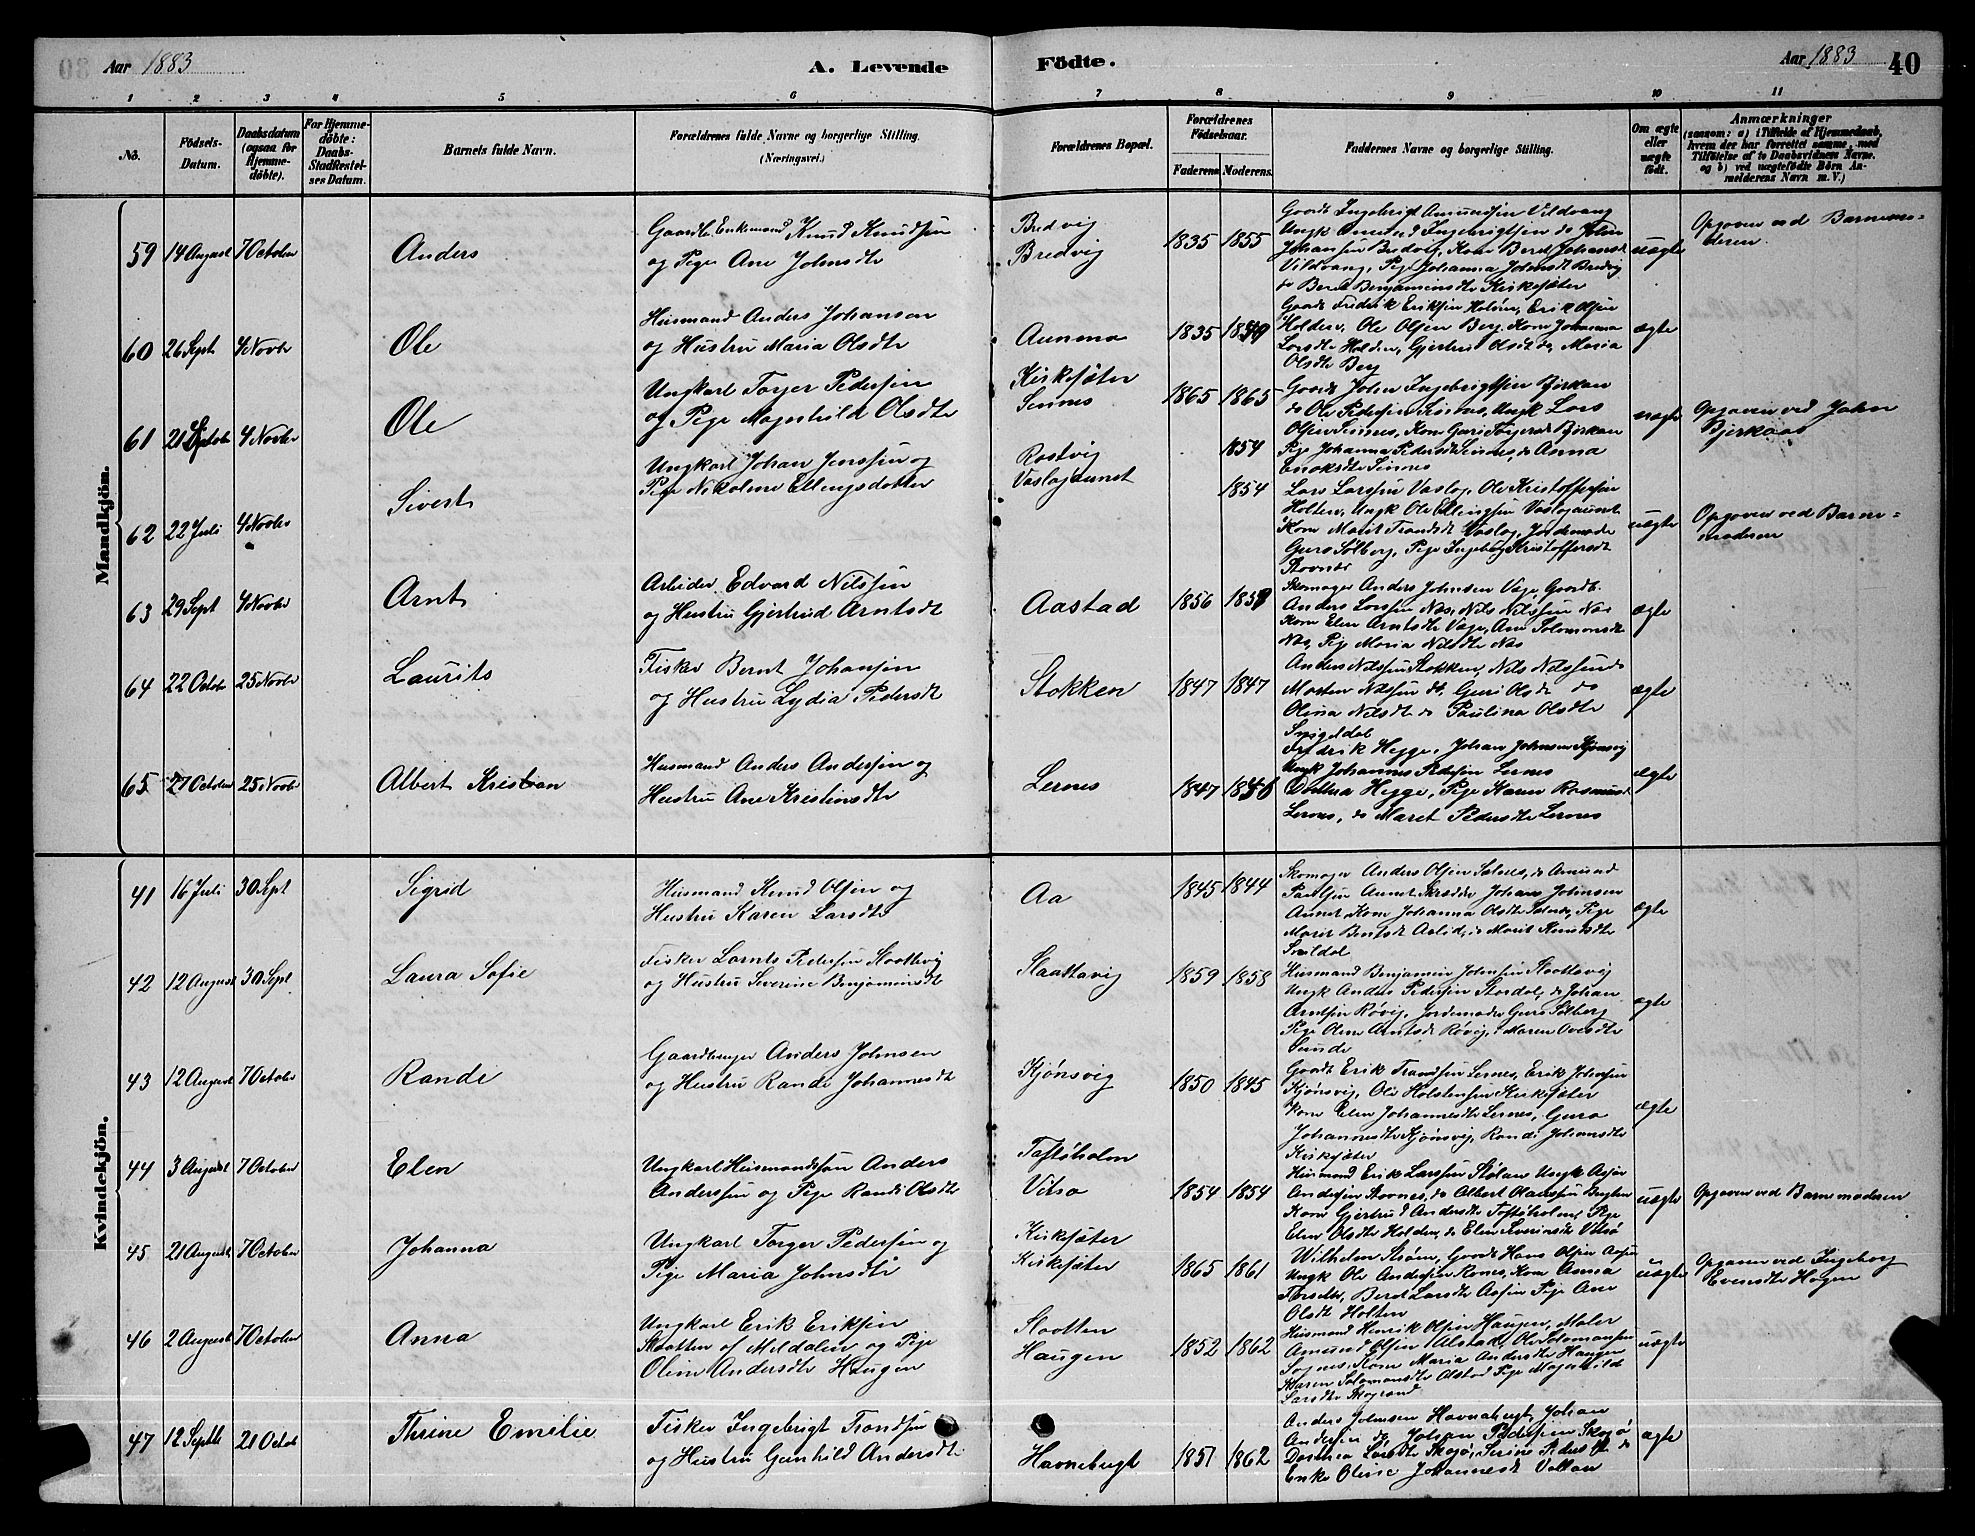 Aar 1883
A. Levende
Födte.
Aar 1883
40
1 2 3 4 5 6 7 8 9 10 11
No.
Födsels-
Datum.
Daabsdatum
(ogsaa for
Hjemme-
döbte).
For Hjemme-
döbte:
Daabs-
Stadfæstel-
ses Datum.
Barnets fulde Navn.
Forældrenes fulde Navne og borgerlige Stilling.
(Næringsvei.)
Forældrenes Bopæl.
Forældrenes
Födselsaar.
Faderens. Moderens.
Faddernes Navne og borgerlige Stilling.
Om ægte
eller
uægte
födt.
Anmærkninger
(saasom: a) i Tilfælde af Hjemmedaab,
hvem der har forrettet samme, med
Tilföielse af to Daabsvidners Navne.
og b) ved uægtefödte Börn An-
melderens Navn m. V.)
Mandkjön.
59 14 August 7 October Anders
Gaardb. Enkemand Knud Knudsen
og Pige Ane Johnsdtr
Bredvig
Bredvig
1835 1855
Gaardb Ingebrigt Amundsen Vildvang
Johansen Bredvig, Kone Beret Johansdt
Vildvang, Pige Johanna Johnsdt Bredvig
do Beret Benjaminsdtr Kirkesæter
uægte
Opgaven ved Barnemo-
deren.
60 26 Sept 4 Novbr Ole
Husmand Anders Johansen
og Hustru Maria Olsdtr
Aunmo
1835 1849
Gaardb Fredrik Eriksen Holden, Erik Olsen
Holden, Ole Olsen Berg, Kone Johanna
Larsdtr Holden, Gjertrud Olsdt do, Maria
Olsdtr Berg
ægte
61 21 4 Novbr Ole
Ungkarl Torger Pedersen
og Pige Magnhild Olsdtr
Kirkesæter
Sinnes
1865 1865
Gaardb John Ingebrigtsen Bjrkan
do Ole Pedersen Sinnes, Ungk Lars
Olsen Sinnes, Kone Guri Torgersdt Bjrkan
Pige Johanna Pedersdt Sinnes, do Anna
Enoksdtr Sinnes
uægte
Opgaven ved John
Bjerkaas
62 22 Juli 4 Novbr Sivert
Ungkarl Johan Jenssen og
Pige Nikoline Ellingsdatter
Rostvig
Vaslagaunet
1854
1854
Lars Larssen Vaslag, Ole Kristoffersen
Holten, Ungk Ole Ellingsen Vaslagaunet
Kone Marit Trondsdt Vaslag, Jordemoder
Guro Solberg, Pige Ingebor Kristoffersdt
Stovnes
uægte
Opgaven ved Barne-
moderen
63 29 Sept 4 Novbr Arnt
Arbeider Edvard Nilssen
og Hustru Gjertrud Arntsdt
Aastad
1856 1857
Skomager Anders Johnsen Vage, Gaardb.
Anders Larssen Næs, Nils Nilssen Næs
Kone Elen Arntsdtr Vage, Ane Solomonsdt
Næs, Pige Maria Nilsdtr Næs
ægte
64 22 Octobr 25 Novbr Laurits
Fisker Bernt Johansen
og Hustru Lydia Pedersdt
Stokken
1847 1847
Anders Nilssen Stokken, Nils Nilssen do
Morten Nilssen do, Guri Olsdt do
Olina Nilsdtr do Paulina Olsdtr
ægte
65 27 October 25 Novbr Albert Kristian
Husmand Anders Andersen og
Hustru Ane Kristinsdtr
Lernes
1847
Fredrik Hegge, Johan Johnsen Kjønsvig
Ungk Johannes Pedersen Lernes
Hegge, Pige Karen Rasmusdt
Lernes, do Maret Pedersdtr Lernes
ægte
Kvindekjön.
41 16 Juli 30 Sept Sigrid
Husmand Knud Olsen og
Hustru Karen Larsdtr
Aa
1845 1844
Skomager Anders Olsen Solnes, do Amund
Paulsen Aunet, Skrædder Johan Johnsen
Aunet, Kone Johanna Olsdtr Solnes, Pige
Marit Berntsdt Aslid, do Marit Knudsdtr
ægte
42 12 August 30 Sept Laura Sofie
Fisker Lornts Pedersen Slaattevig
og Hustru Severine Benjaminsdt
Slaattavig
1859 1858
Husmand Benjamin Johnsen Slaattavig
Ungk Anders Pedersen Stordal, do Johan
Arntsen Røvig, Jordemoder Guro Solberg
Pige Oline Arntsdt Røvig, do Maren Ovesdtr
Sunde
ægte
43 12 August 7 October Randi
Gaardbruger Anders Johnsen
og Hustru Randi Johannesdt
Kjønsvig
1850 1845
Gaardb Erik Trondsen Lernes, Erik Johnsen
Kjønsvig, Ole Holstensen Kirkesæter
Kone Elen Johannesdtr Lernes, Guro
Johannesdtr Kjønsvig, Randi Johansdtr
Kirksæter
ægte
44 3 August 7 October Elen
Ungkarl Husmandssøn Anders
Anderssen og Pige Randi Olsdtr
Taftøholm
Vitsø
1854 1854
Husmand Erik Larssen Stølan, Ungk Asgar
Andersen Stovnes, do Albert Olaussen
Kone Gjertrud Andersdtr Toftøholm, Pige
Elen Olsdtr Holden, do Elen Iversdtr Vitsø
uægte
Opgaven ved Barnemoderen
45 21 August 7 October Johanna
Ungkarl Torger Pedersen og
Pige Maria Johnsdtr
Kirkesæter
Kirkesæter
1865 1861
Wilhelm Strøm, Gaardb Hans Olsen Aasen
Ungk Ole Andersen Rones, Kone Anna
Beret Larsdtr Aasen, Pige Ane
Olsdt Holten
uægte
Opgaven ved Ingeborg
Evensdtr Hagen
46 2 August 7 October Anna
Ungkarl Erik Eriksen
Slaatten af Meldalen og Pige
Oline Andersdtr Haugen
Slaatten
Haugen
1852 1862
Husmand Henrik Olsen Haugen, Maler
Amund Olsen Alstad, Ole Solomonsen
Sognes, Kone Maria Andersdtr Haugen
Karen Solomonsdtr Alstad, Pige Magnhild
Larsdtr Skogrand
uægte
47 12 Septbr 21 Octob Thrine Emilie
Fisker Ingebrigt Trondsen
og Hustru Gunhild Andersdtr
Havnebugt
1851 1862
Anders Johnsen Havnebugt, Johan
Andersen do, Johan Pedersen Skogø
Dorthea Larsdtr Skogø, Serine Pedersdtr do
Enke Oline Johannesdt Vollan
ægte